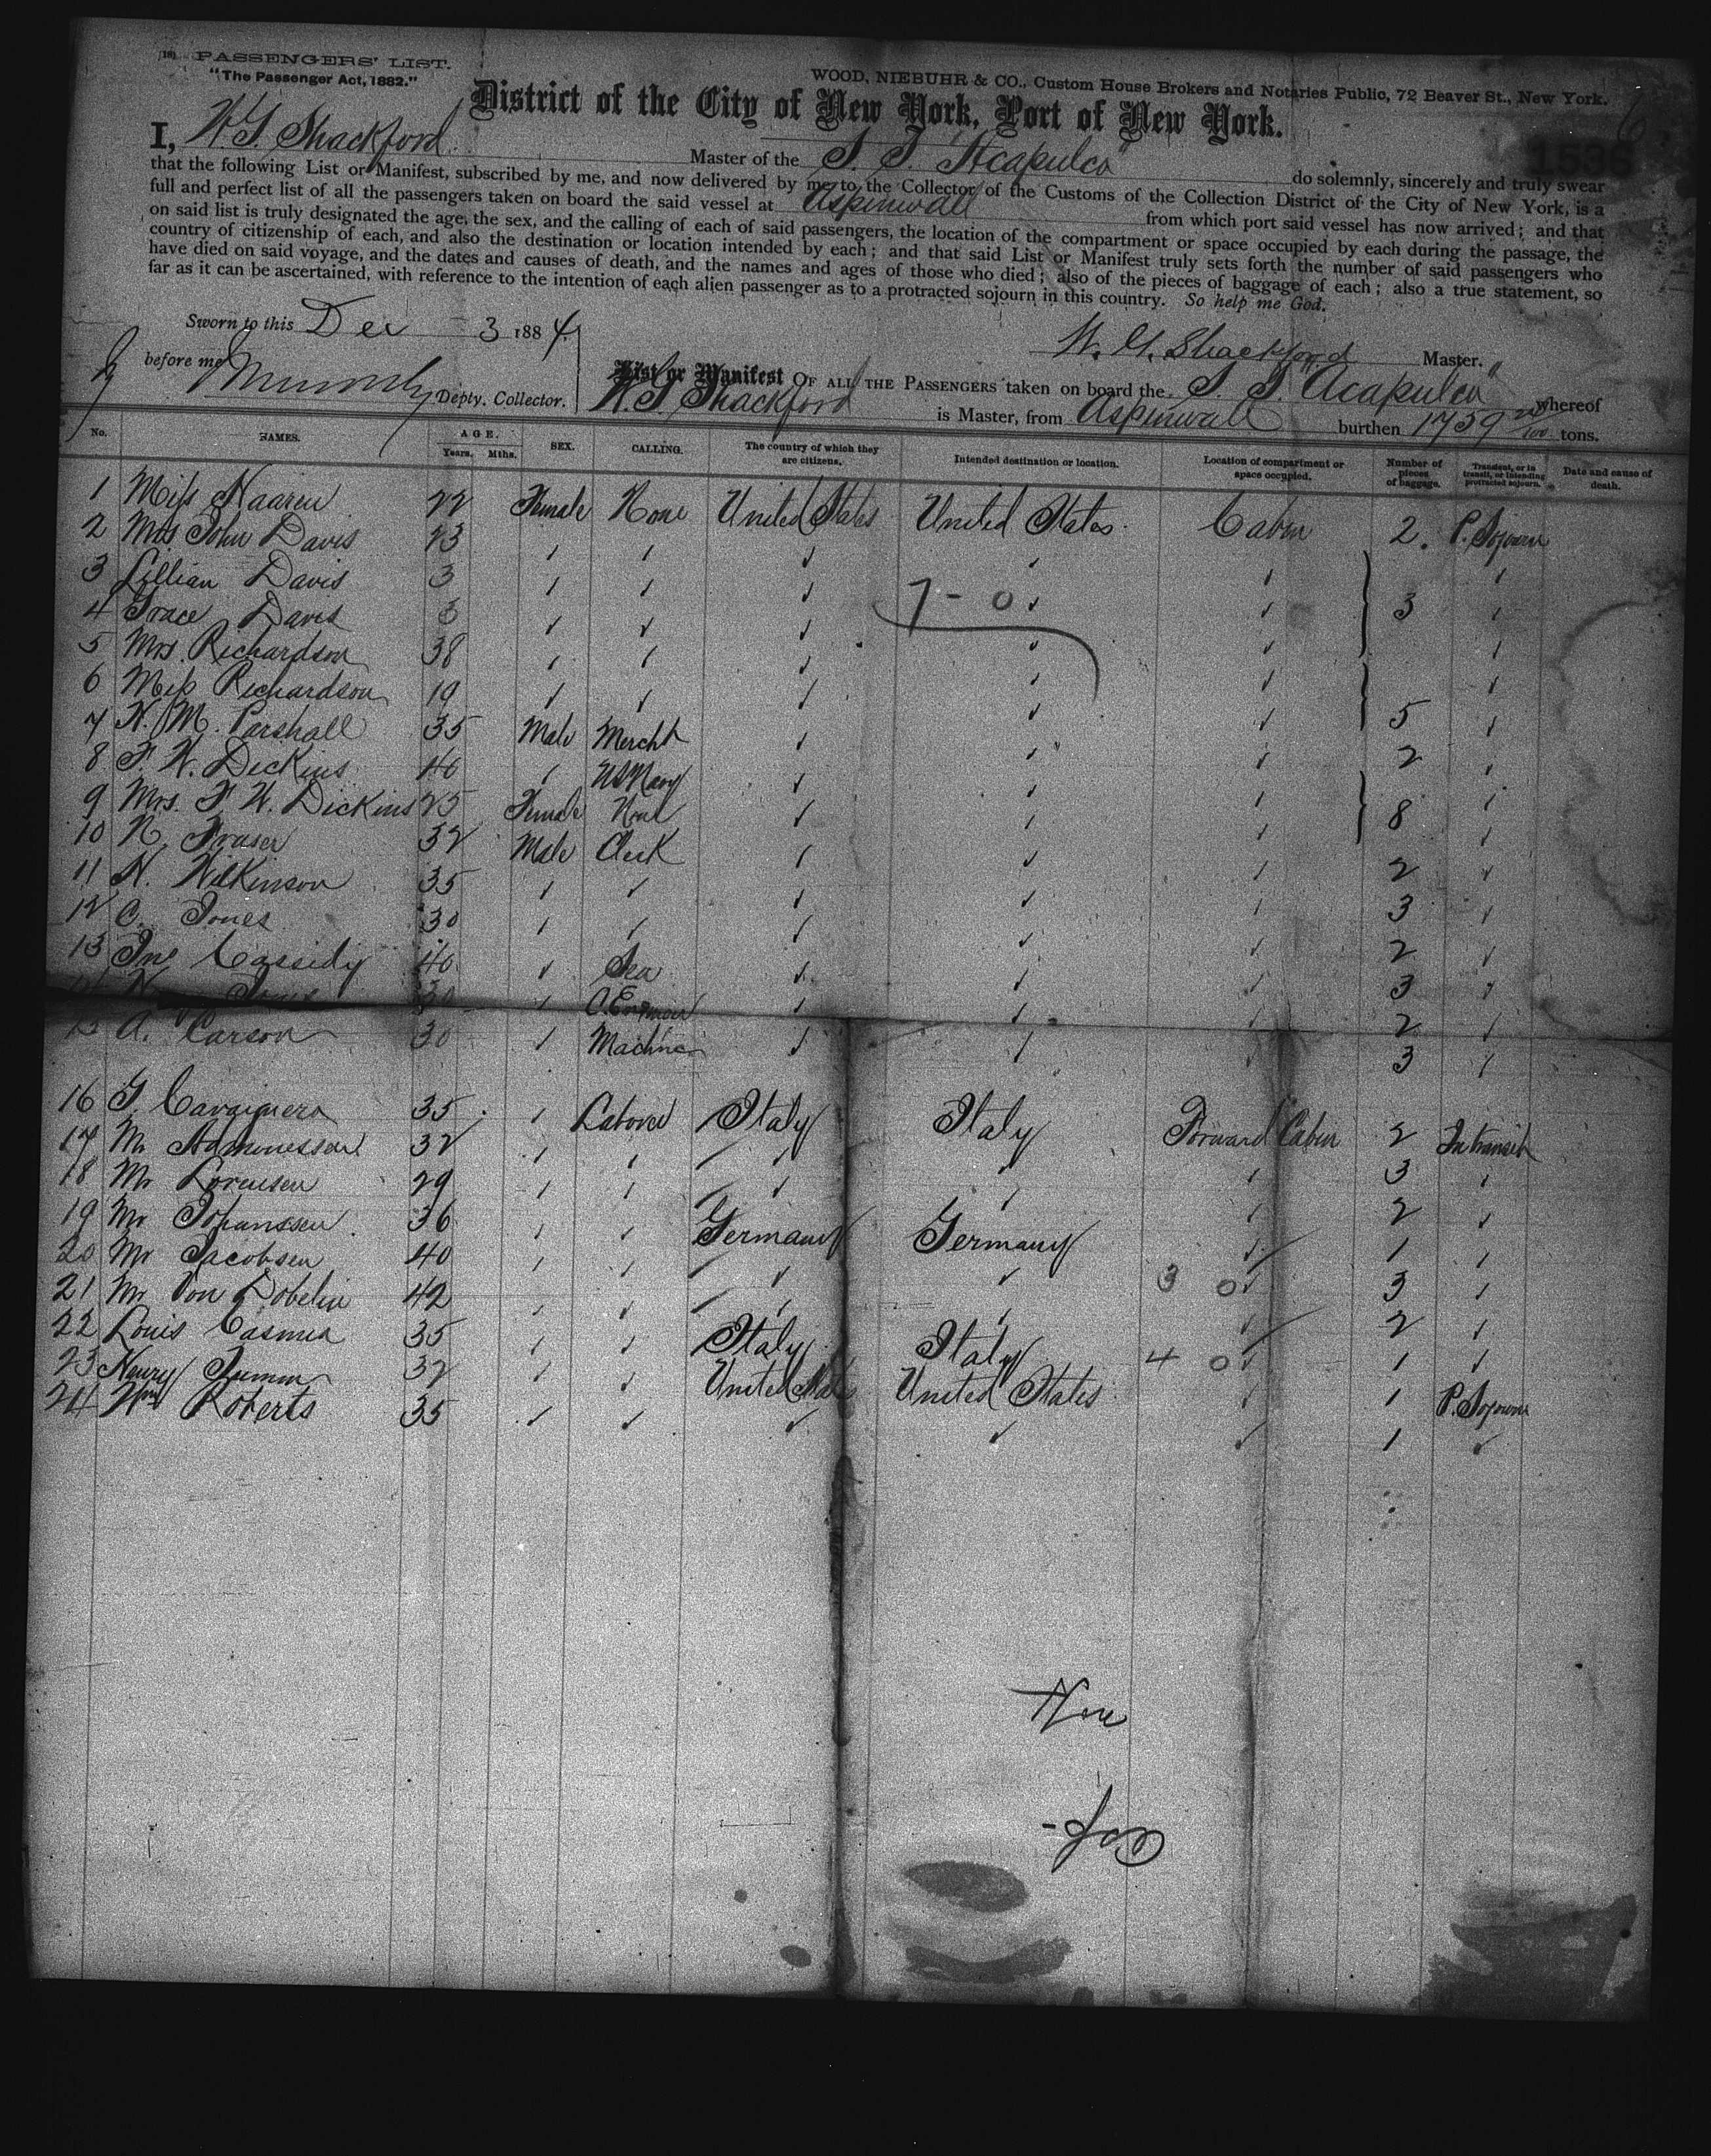 (18) PASSENGERS' LIST.
"The Passenger Act, 1882."
WOOD, NIEBUHR & CO., Custom House Brokers and Notaries Public, 72 Beaver St., New York.
6
District of the City of New York, Port of New York.
1536
I, W. G. Shackford Master of the S. S. "Acapulco" do solemnly, sincerely and truly swear
that the following List or Manifest, subscribed by me, and now delivered by me to the Collector of the Customs of the Collection District of the City of New York, is a
full and perfect list of all the passengers taken on board the said vessel at Aspinwall from which port said vessel has now arrived; and that
on said list is truly designated the age, the sex, and the calling of each of said passengers, the location of the compartment or space occupied by each during the passage, the
country of citizenship of each, and also the destination or location intended by each; and that said List or Manifest truly sets forth the number of said passengers who
have died on said voyage, and the dates and causes of death, and the names and ages of those who died; also of the pieces of baggage of each; also a true statement, so
far as it can be ascertained, with reference to the intention of each alien passenger as to a protracted sojourn in this country. So help me God.
Sworn to this Dec 3 1884
W. G. Shackford Master.
before me Depty. Collector.
List or Manifest OF ALL THE PASSENGERS taken on board the S. S. "Acapulco" whereof
W. G. Shackford is Master, from Aspinwall burthen 1759 tons.
No. NAMES. AGE. Years. Mths. SEX. CALLING. The country of which they are citizens. Intended destination or location. Location of compartment or space occupied. Number of pieces of baggage. Transient, or in transit, or intending protracted sojourn. Date and cause of death.
1 Miss 22 Female None United States United States Cabin 2. P. Sojourn
2 Mrs John Davis 23
3 Lillian Davis 3 3
4 Grace Davis 3 7-0
5 Mrs. Richardson 38
6 Miss Richardson 19 5
7 H. M. Parshall 35 Male Mercht 2
8 F. W. Dickins 40 US Navy
9 Mrs. F. W. Dickins 25 Female None 8
10 N. Fraser 32 Male Clerk 2
11 H. Wilkinson 35 3
12 C. Jones 30 2
13 Jno Cassidy 40 Sea 3
14 Jones 30 C. Engineer 2
15 A. Carson 30 Machine 3
16 G. 35 Laborer Italy Italy Forward Cabin 2 In transit
17 Mr 32 3
18 Mr Lorensen 29 2
19 Mr Johanssen 36 Germany Germany 1
20 Mr Jacobsen 40 3 0 3
21 Mr Von Dobelin 42 2
22 Louis 35 Italy Italy 4 0 1
23 Henry 32 United States United States 1 P. Sojourn
24 Wm Roberts 35 1